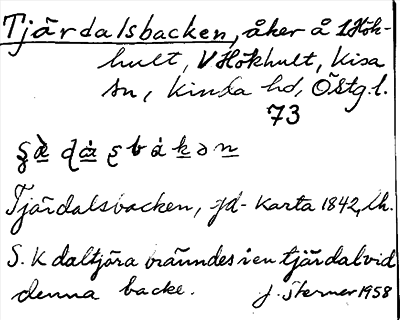 Tjärdalsbacken, åker å 1 Hök-
hult, V Hökhult, Kisa
sn, Kinda hd, Östg.l.
73
Tjärdalsbacken, Jd-Karta 1842, Lh.
S. K daltjära brändes i en tjärdal vid
denna backe. J. Sterner 1958